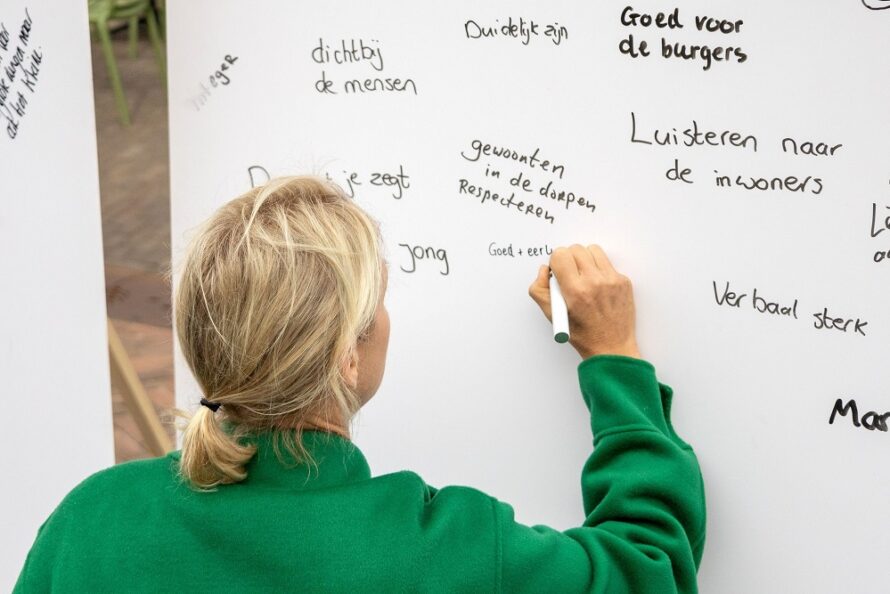 al het kleine
integer
dichtbij
de mensen
Duidelijk zijn
Goed voor
de burgers
Luisteren naar
de inwoners
gewoonten
in de dorpen
Respecteren
je zegt
jong
Goed + eerl
Verbaal sterk
Mar